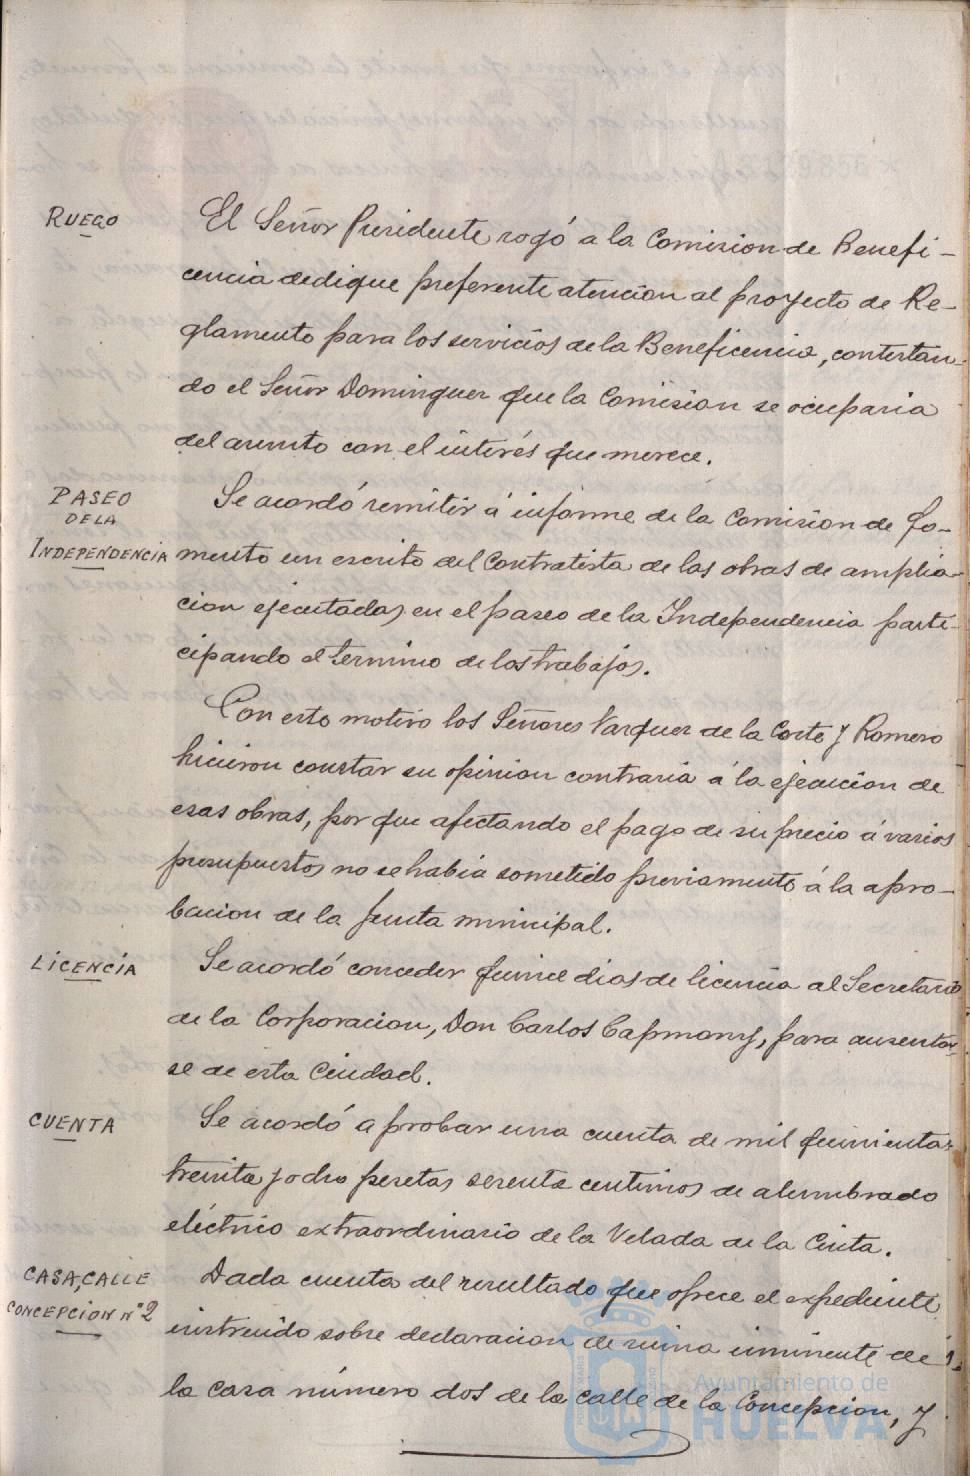 RUEGO
El Señor Presidente rogó a la Comision de Benefi-
cencia dedique preferente atencion al proyecto de Re-
glamento para los servicios de la Beneficencia, contestan-
do el Señor Dominguez que la Comision se ocuparia
del asunto con el interés que merece.
PASEO
DE LA
INDEPENDENCIA
Se acordó remitir á informe de la Comision de Fo-
mento un escrito del Contratista de las obras de amplia-
cion ejecutadas en el paseo de la Independencia parti-
cipando el termino de los trabajos.
Con este motivo los Señores Vazquez de la Corte y Romero
hicieron constar su opinion contraria á la ejecucion de
esas obras, por que afectando el pago de su precio á varios
presupuestos no se habia sometido previamente á la apro-
bacion de la Junta municipal.
LICENCIA
Se acordó conceder quince dias de licencia al Secretario
de la Corporacion, Don Carlos Capmany, para ausentar-
se de esta Ciudad.
CUENTA
Se acordó aprobar una cuenta de mil quinientas
treinta y ocho pesetas sesenta centimos de alumbrado
eléctrico extraordinario de la Velada de la Cinta.
CASA, CALLE
CONCEPCION Nº 2
Dada cuenta del resultado que ofrece el expediente
instruido sobre declaracion de ruina iminente de
la casa número dos de la calle de la Concepcion, y
Ayuntamiento de
HUELVA